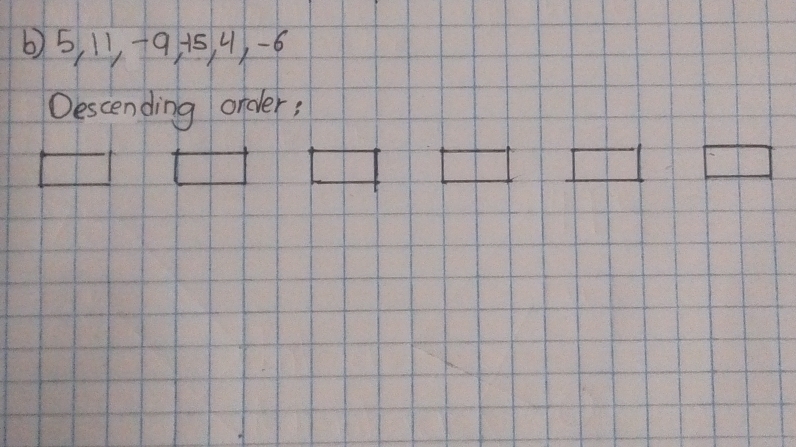 b) 5, 11, -9, -15, 4, -6
Descending order: